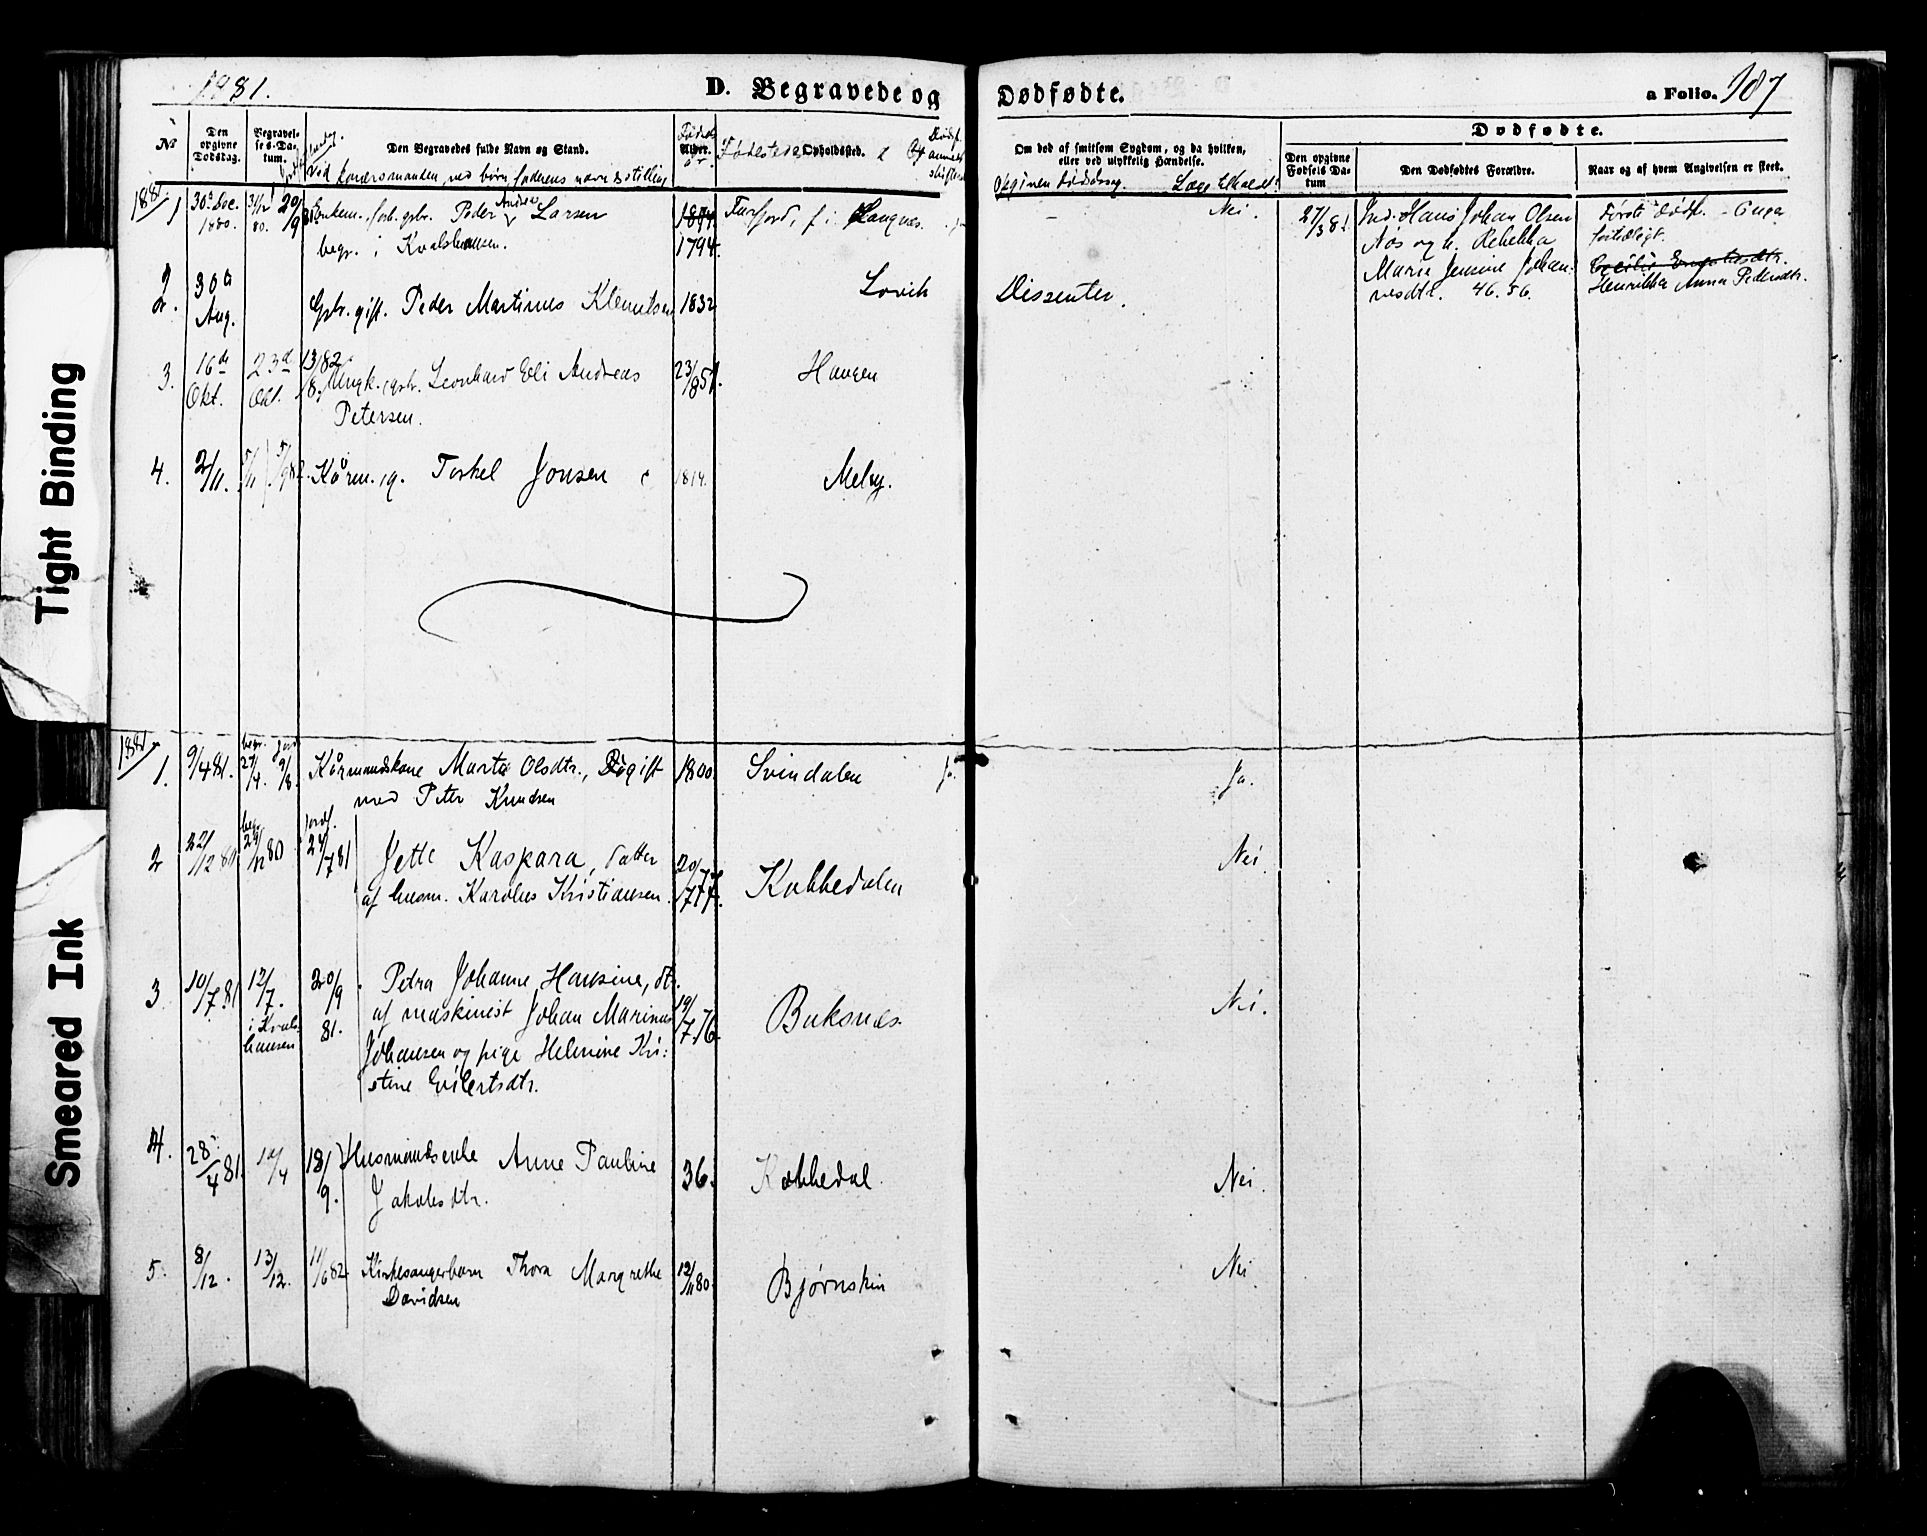 1881.
D. Begravede og
Dødfødte.
a Folio. 187
No
Den opgivne Dødsdag.
Begravelses-Datum.
Den Begravedes fulde Navn og Stand.
ved koner manden, ved børn faderens navn & stilling
Fødselsår
Alder.
Fødested
Opholdssted.
Om død af smitsom Sygdom, og da hvilken,
eller ved ulykkelig Hændelse.
Opgiven dødsårsag. Læge tilkaldt?
Dødfødte.
Den opgivne Fødsels Datum
Den Dødfødtes Forældre.
Naar og af hvem Angivelsen er skeet.
1881
1
30te Dec. 1880.
31/12 80.
20/9 81
Enkem., forh. gbr. Peder Andreas Larsen
begr. i Kvalshausen.
1804
1794
Furfjord, f. i Langnes.
Nei.
27/3 81
Ind. Hans Johan Olsen
Nøs og h. Rebekka
Marie Jensine Johan-
nesdtr. 46. 36.
Første dødf.
Henrikka Anna Pedersdtr.
2.
30te Aug.
Gbr. gift. Peder Martinus Klemetsen
1832
Lovik
Dissenter.
3.
16de Okt.
23de Okt.
Ungk., gbr. Leonhard Eli Andreas
Petersen.
23/ 851.
Haugen
4.
2/11.
5/11
5/9 82.
Kårm. ig. Torkel Jonsen
1814.
Melby.
1881
1.
9/4 81.
begr. 27/4.
jord 9/8.
Kårmandskone Marta Olsdtr., gift
med Peter Knudsen
1800
Svindalen
Ja.
Ja.
2
22/12 80
begr. 29/12 80
jordf. 24/7 81
Jette Kaspara, datter
af husm. Karolus Kristiansen.
20/7 77.
Kobbedalen
Nei.
3
10/7 81
12/7. i Kvals-
hausen
20/9 81.
Petra Johanne Hansine, dt.
af maskinist Johan Marinus
Johansen og pige Helmine Kri-
stine Eilertsdtr.
19/7 76
Buksnes.
Nei.
4.
28/4 81.
12/4
18/9.
Husmandsenke Anne Pauline
Jakobsdtr.
36.
Kobbedal.
Nei.
5.
8/12.
13/12.
11/6 82.
Kirkesangerbarn Thora Margrethe
Davidsen
12/11 80.
Bjørnskin
Nei.
Tight Binding
Smeared Ink